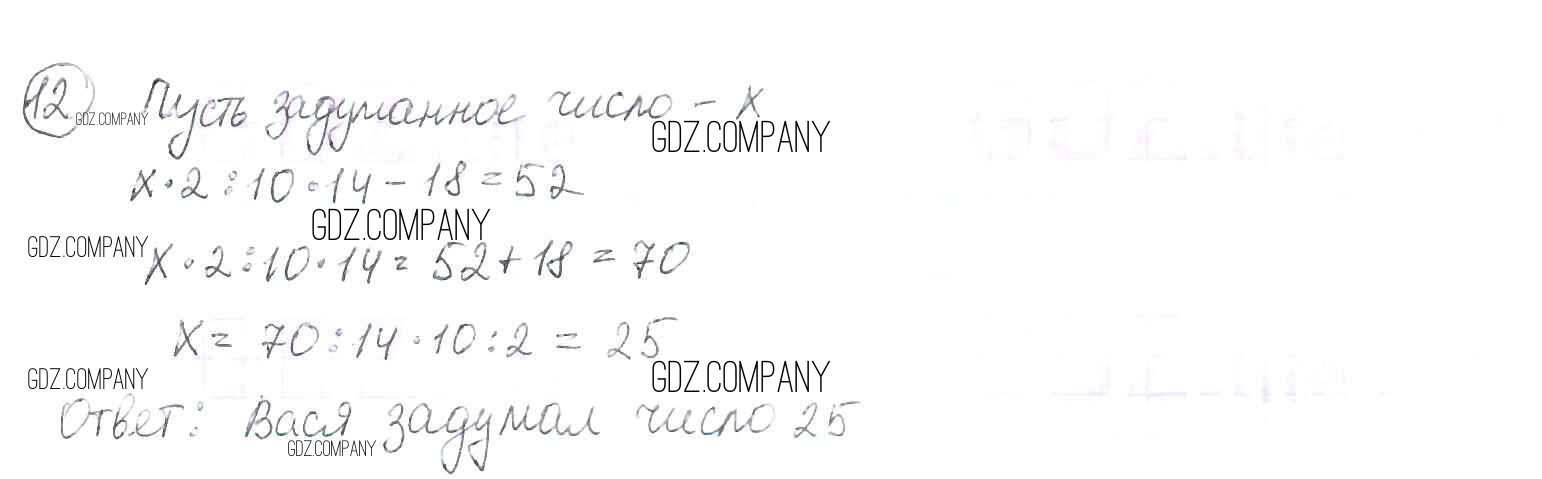 12 Пусть задуманное число - х
GDZ.COMPANY
GDZ.COMPANY
х · 2 : 10 · 14 - 18 = 52
GDZ.COMPANY
GDZ.COMPANY
х · 2 : 10 · 14 = 52 + 18 = 70
х = 70 : 14 · 10 : 2 = 25
GDZ.COMPANY
GDZ.COMPANY
Ответ: Вася задумал число 25
GDZ.COMPANY